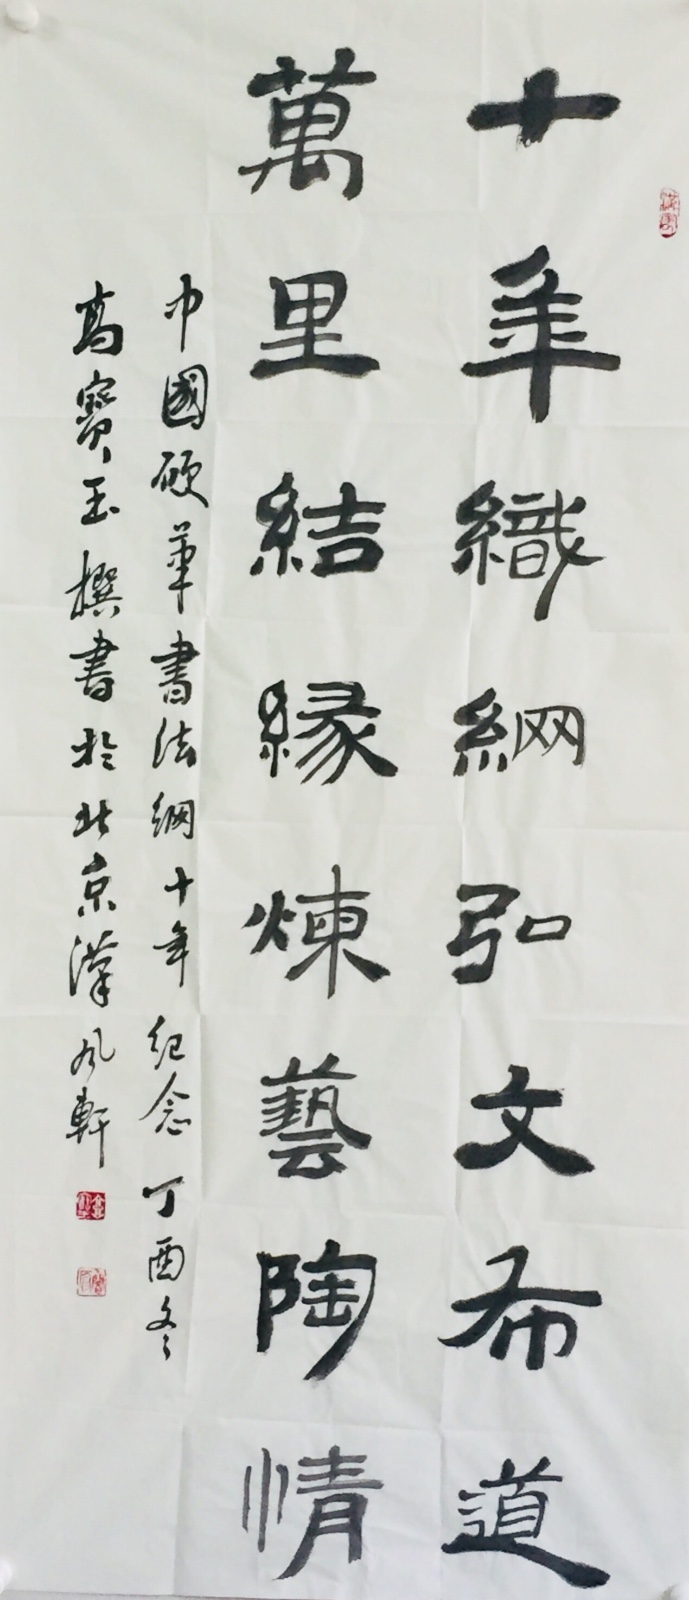 十年織網弘文布道
萬里結緣煉藝陶情
中國硬筆書法網十年紀念 丁酉冬
高寶玉撰書於北京漢風軒